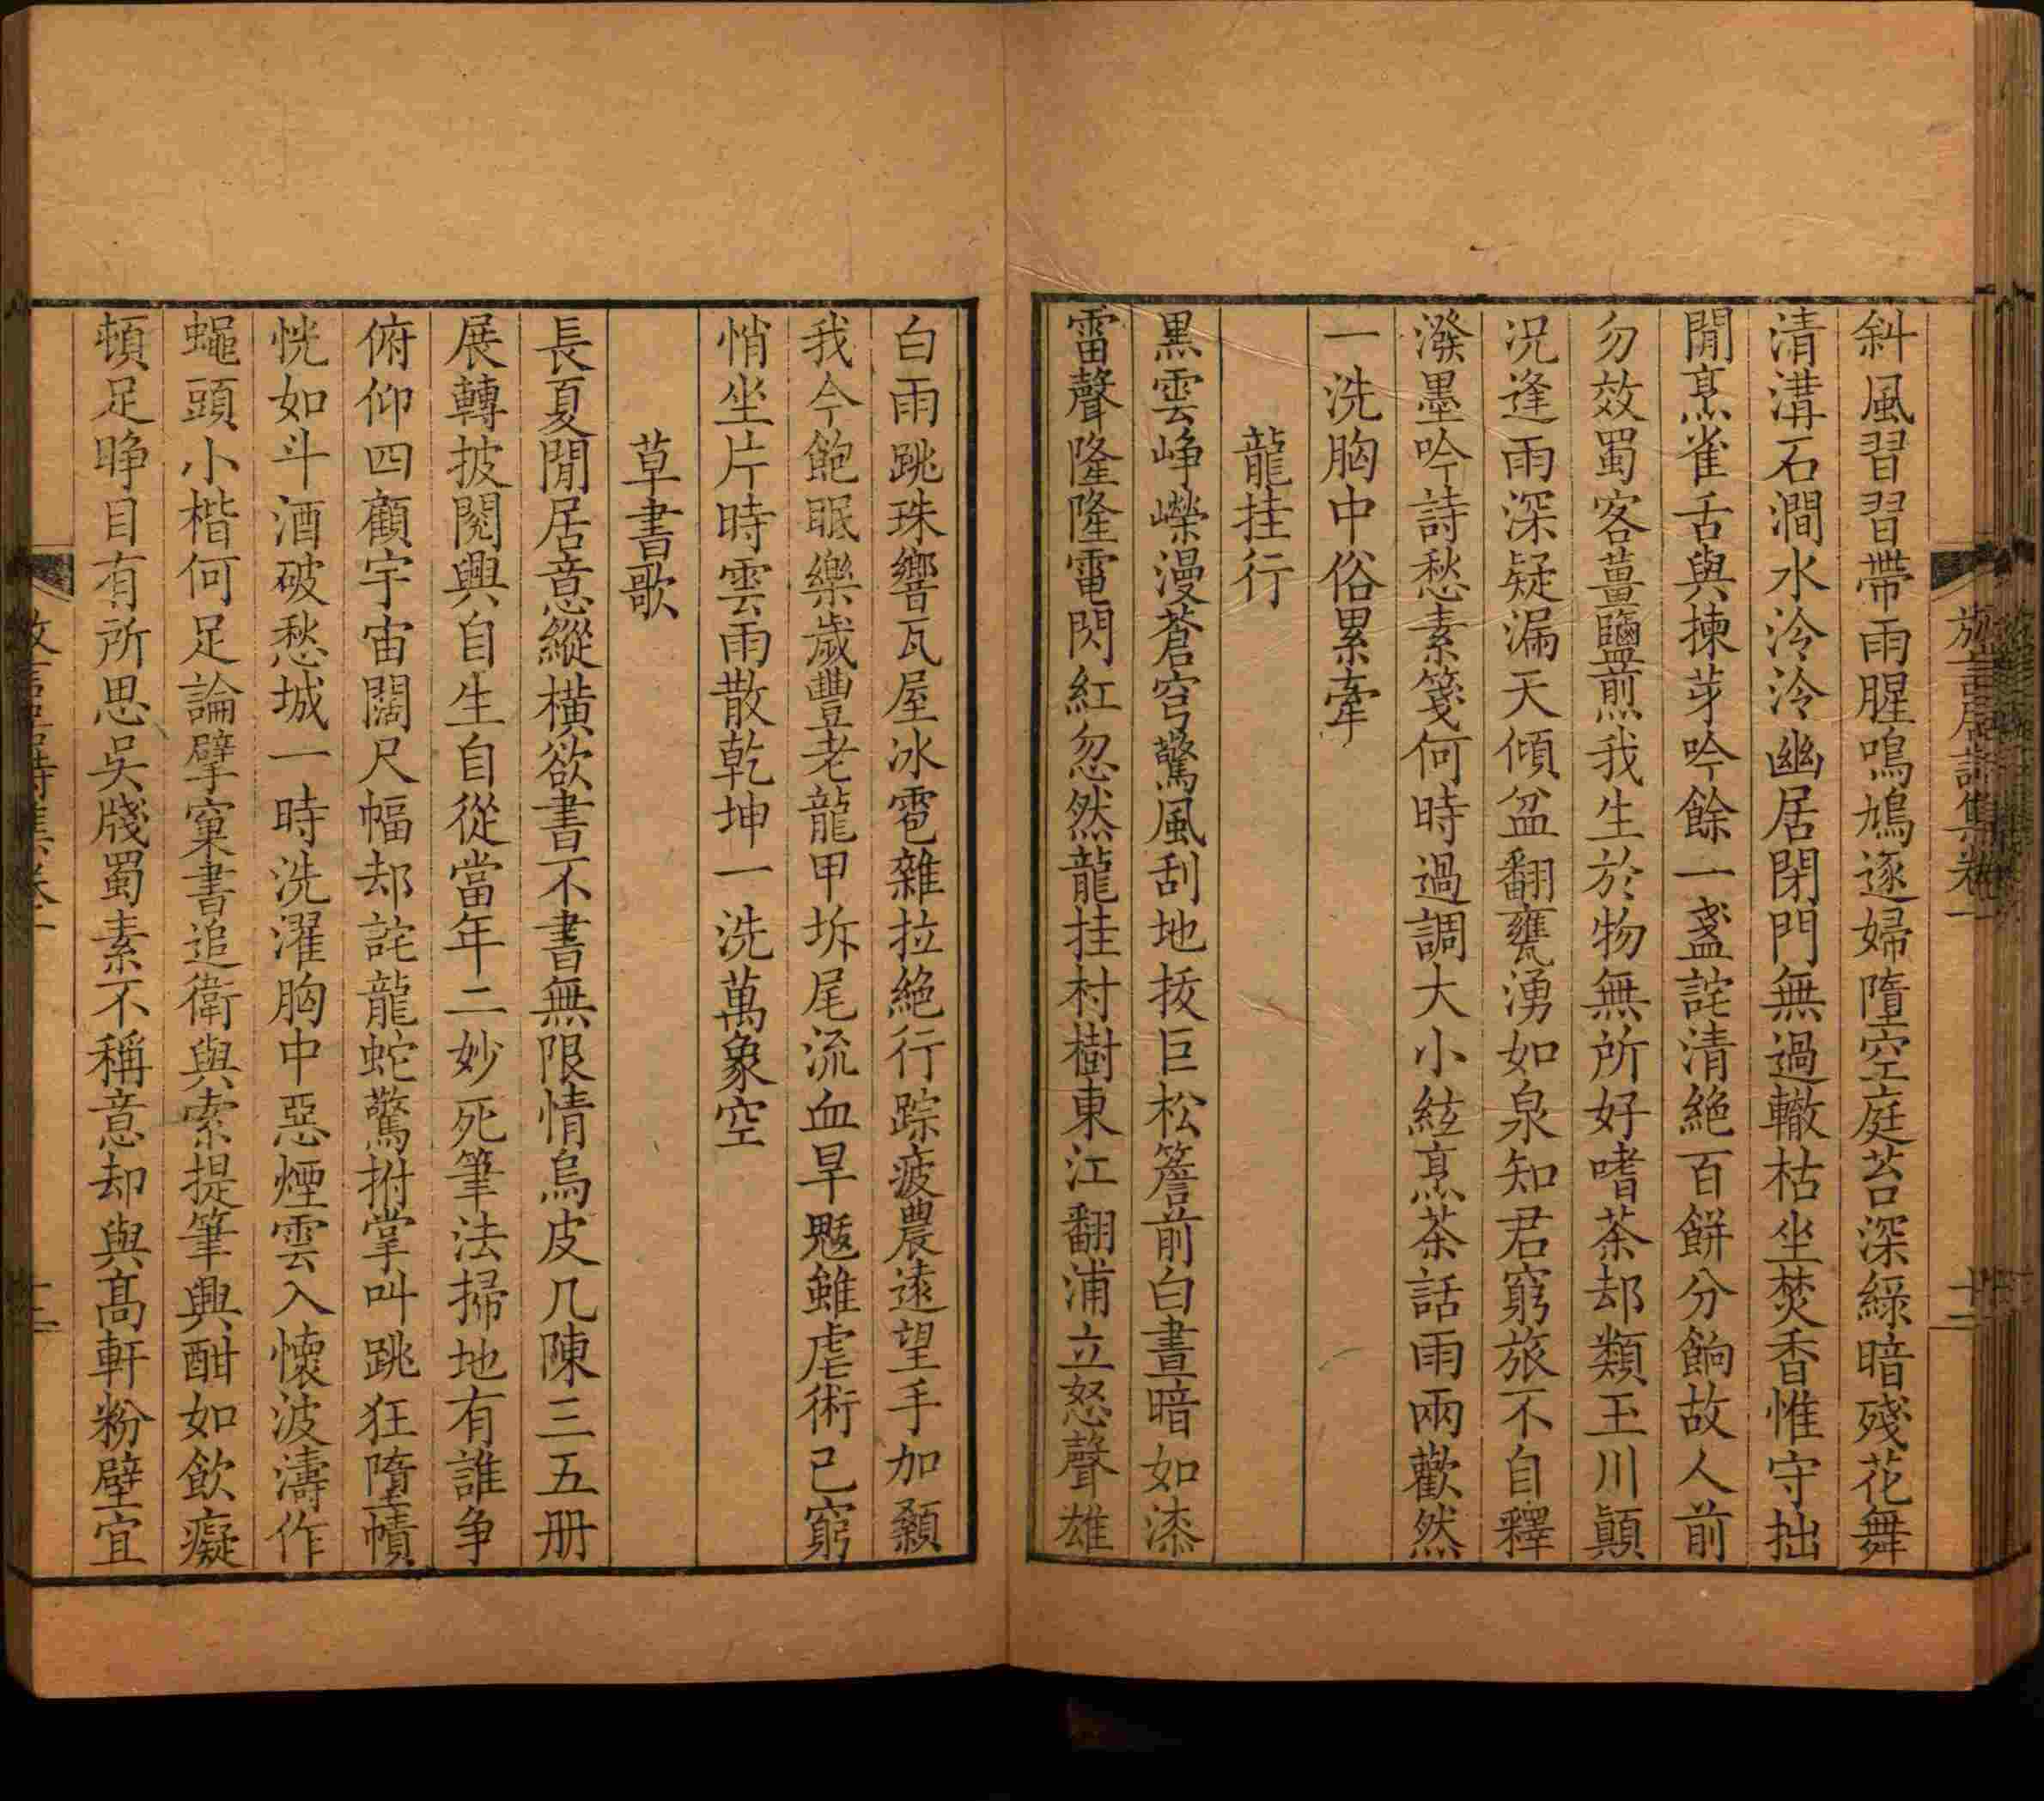 斜風習習帶雨腥鳴鳩逐婦墮空庭苔深綠暗殘花舞
清溝石澗水泠泠幽居閉門無過轍枯坐焚香惟守拙
閒烹雀舌與揀芽吟餘一盞詫清絕百餅分餉故人前
勿效蜀客薑鹽煎我生於物無所好嗜茶却類玉川顛
況逢雨深疑漏天傾盆翻甕湧如泉知君窮旅不自釋
潑墨吟詩愁素箋何時過調大小絃烹茶話雨兩歡然
一洗胸中俗累牽
龍挂行
黑雲崢嶸漫蒼穹驚風刮地拔巨松簷前白晝暗如漆
雷聲隆隆電閃紅忽然龍挂村樹東江翻浦立怒聲雄
白雨跳珠響瓦屋冰雹雜拉絕行踪疲農遠望手加額
我今飽眠樂歲豐老龍甲坼尾流血旱魃雖虐術已窮
悄坐片時雲雨散乾坤一洗萬象空
草書歌
長夏閒居意縱橫欲書不書無限情烏皮几陳三五册
展轉披閱興自生自從當年二妙死筆法掃地有誰争
俯仰四顧宇宙闊尺幅却詫龍蛇驚拊掌叫跳狂墮幘
恍如斗酒破愁城一時洗濯胸中惡煙雲入懷波濤作
蠅頭小楷何足論擘窠書追衛與索提筆興酣如飲癡
頓足睜目有所思吳牋蜀素不稱意却與高軒粉壁宜